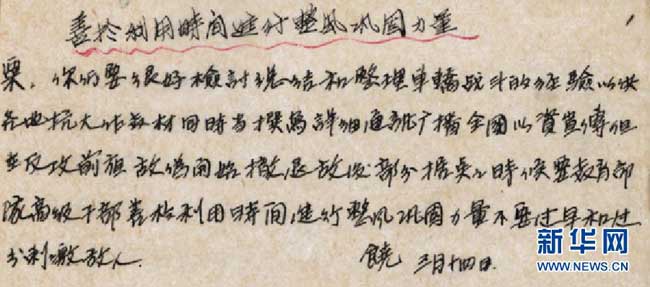 善於利用時間進行整風巩固力量
粟,你们要很好檢討总结和整理車轎战斗的经驗以供
各地抗大作教材同時當撰寫詳细通訊广播全國以資宣傳但
在反攻前夜敌偽開始撤退敌後部分据点之時候要教育部
隊高级干部善於利用時間進行整风巩固力量不要过早和过
分刺激敌人.
饒 三月十四日.
新华网
NEWS.CN